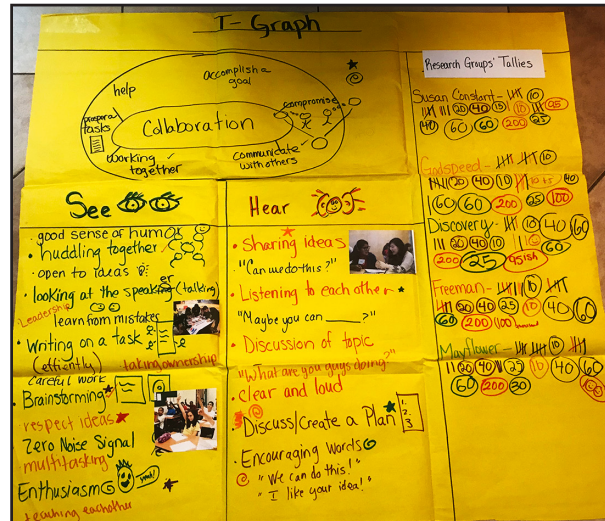 I-Graph
help
accomplish a goal
prepare tasks
Collaboration
compromise
working together
communicate with others
See
good sense of humor
huddling together
open to ideas
looking at the speaker (talking)
Leadership
learn from mistakes
Writing on a task
(effiently) taking ownership
careful work
Brainstorming
respect ideas
Zero Noise Signal
multitasking
Enthusiasm
teaching eachother
Hear
Sharing ideas
"Can we do this?"
Listening to each other
"Maybe you can ____?"
Discussion of topic
"What are you guys doing?"
clear and loud
Discuss/Create a Plan
1.
2.
3
Encouraging Words
"We can do this!"
"I like your idea!"
Research Groups' Tallies
Susan Constant - 10
20 40 10 10 95
40 60 60 200 25
Godspeed - 10
20 40 10
60 60 200 25 100
Discovery - 10 40 60
20 40 10 60
200 25 95ish
Freeman - 10
20 40 25 10 40 60
60 200 100
Mayflower - 10
20 40 25 10 40 60
60 200 30